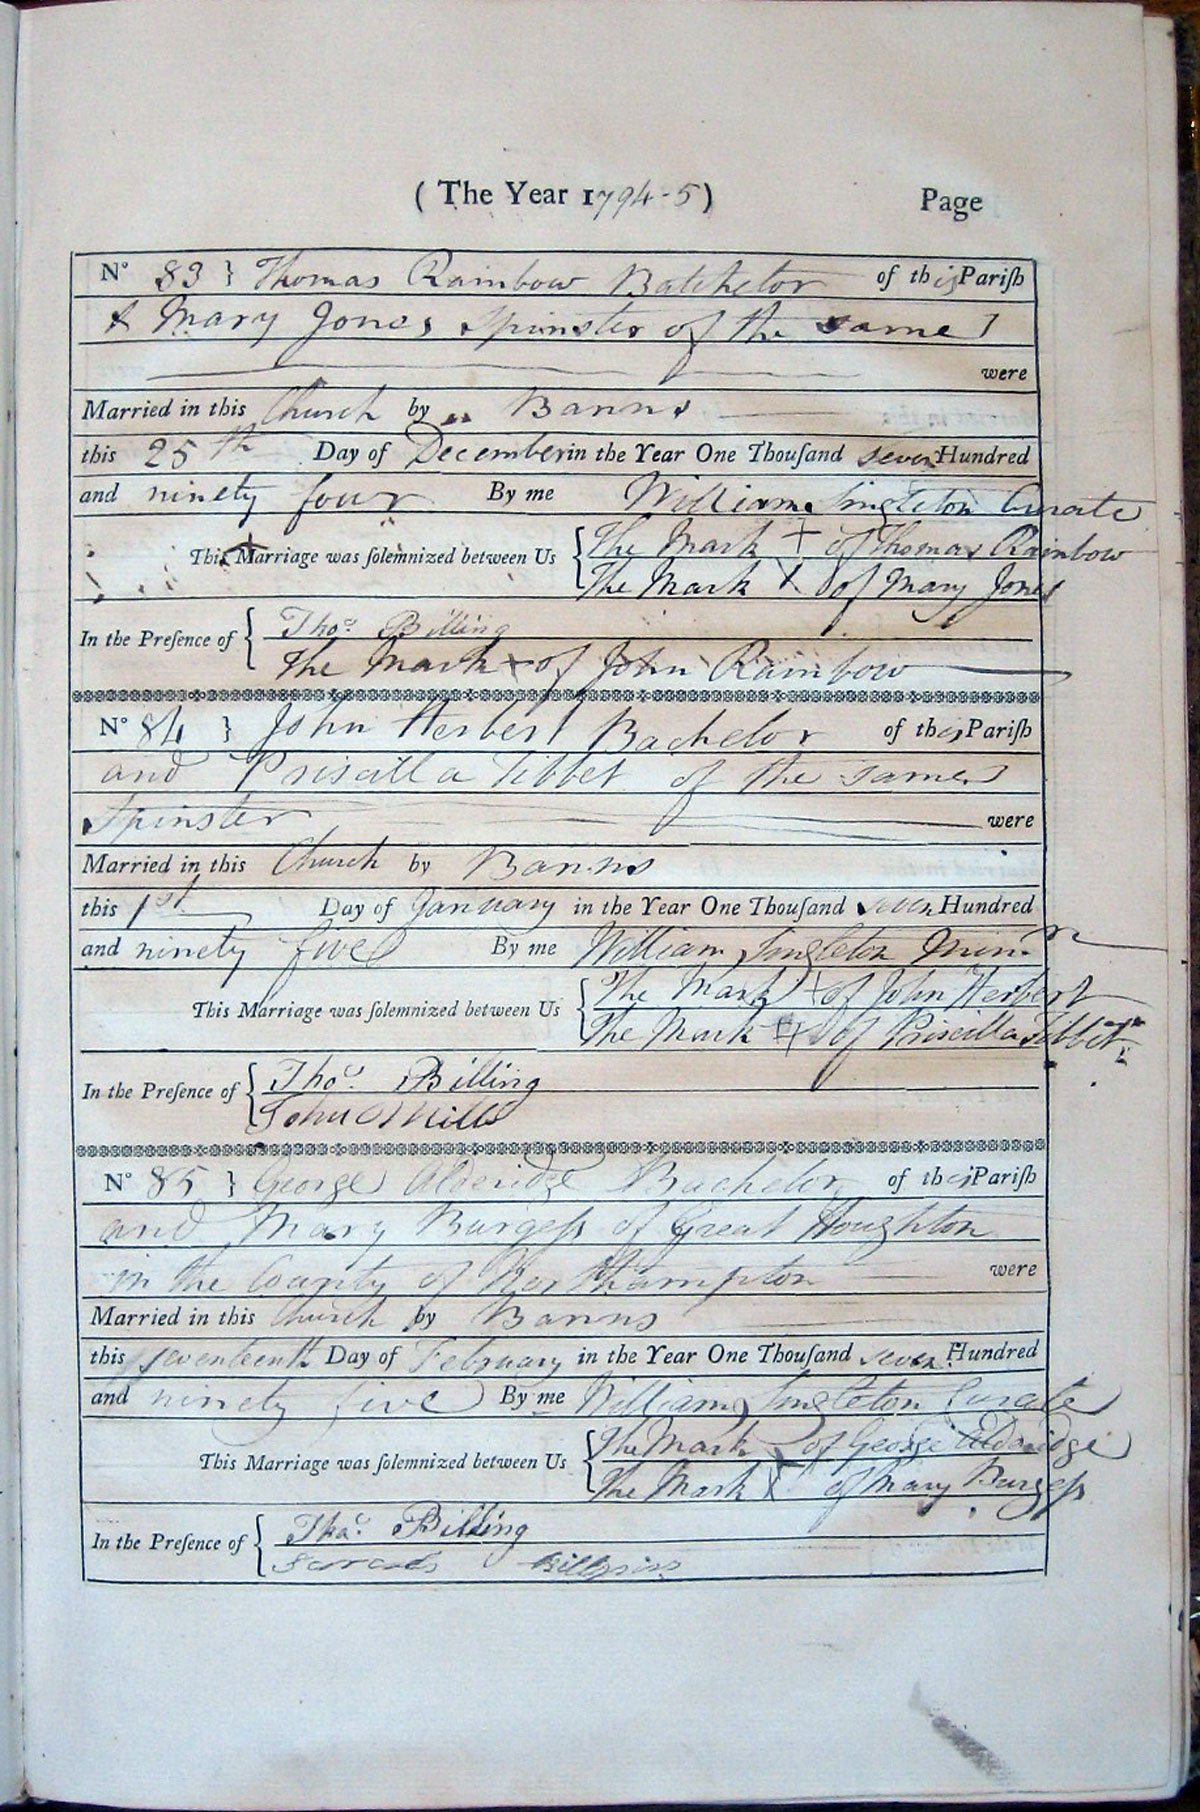 ( The Year 1794-5 ) Page
No 83 } Thomas Rainbow Batchelor of this Pariſh
& Mary Jones Spinster of the same }
were
Married in this Church by Banns
this 25th Day of December in the Year One Thouſand seven Hundred
and ninety four By me William Singleton Curate
This Marriage was ſolemnized between Us { The Mark + of Thomas Rainbow
The Mark X of Mary Jones
In the Preſence of { Thos. Billing
The Mark + of John Rainbow
No 84 } John Herbert Bachelor of this Pariſh
and Priscilla Tibbet of the same }
Spinster were
Married in this Church by Banns
this 1st Day of January in the Year One Thouſand seven Hundred
and ninety five By me William Singleton Minr
This Marriage was ſolemnized between Us { The Mark + of John Herbert
The Mark + of Priscilla Tibbit
In the Preſence of { Thos. Billing
John Mills
No 85 } George Alderidge Bachelor of this Pariſh
and Mary Burgeſs of Great Houghton
in the County of Northampton were
Married in this Church by Banns
this seventeenth Day of February in the Year One Thouſand seven Hundred
and ninety five By me William Singleton Curate
This Marriage was ſolemnized between Us { The Mark X of George Alderidge
The Mark X of Mary Burgeſs
In the Preſence of { Thos. Billing